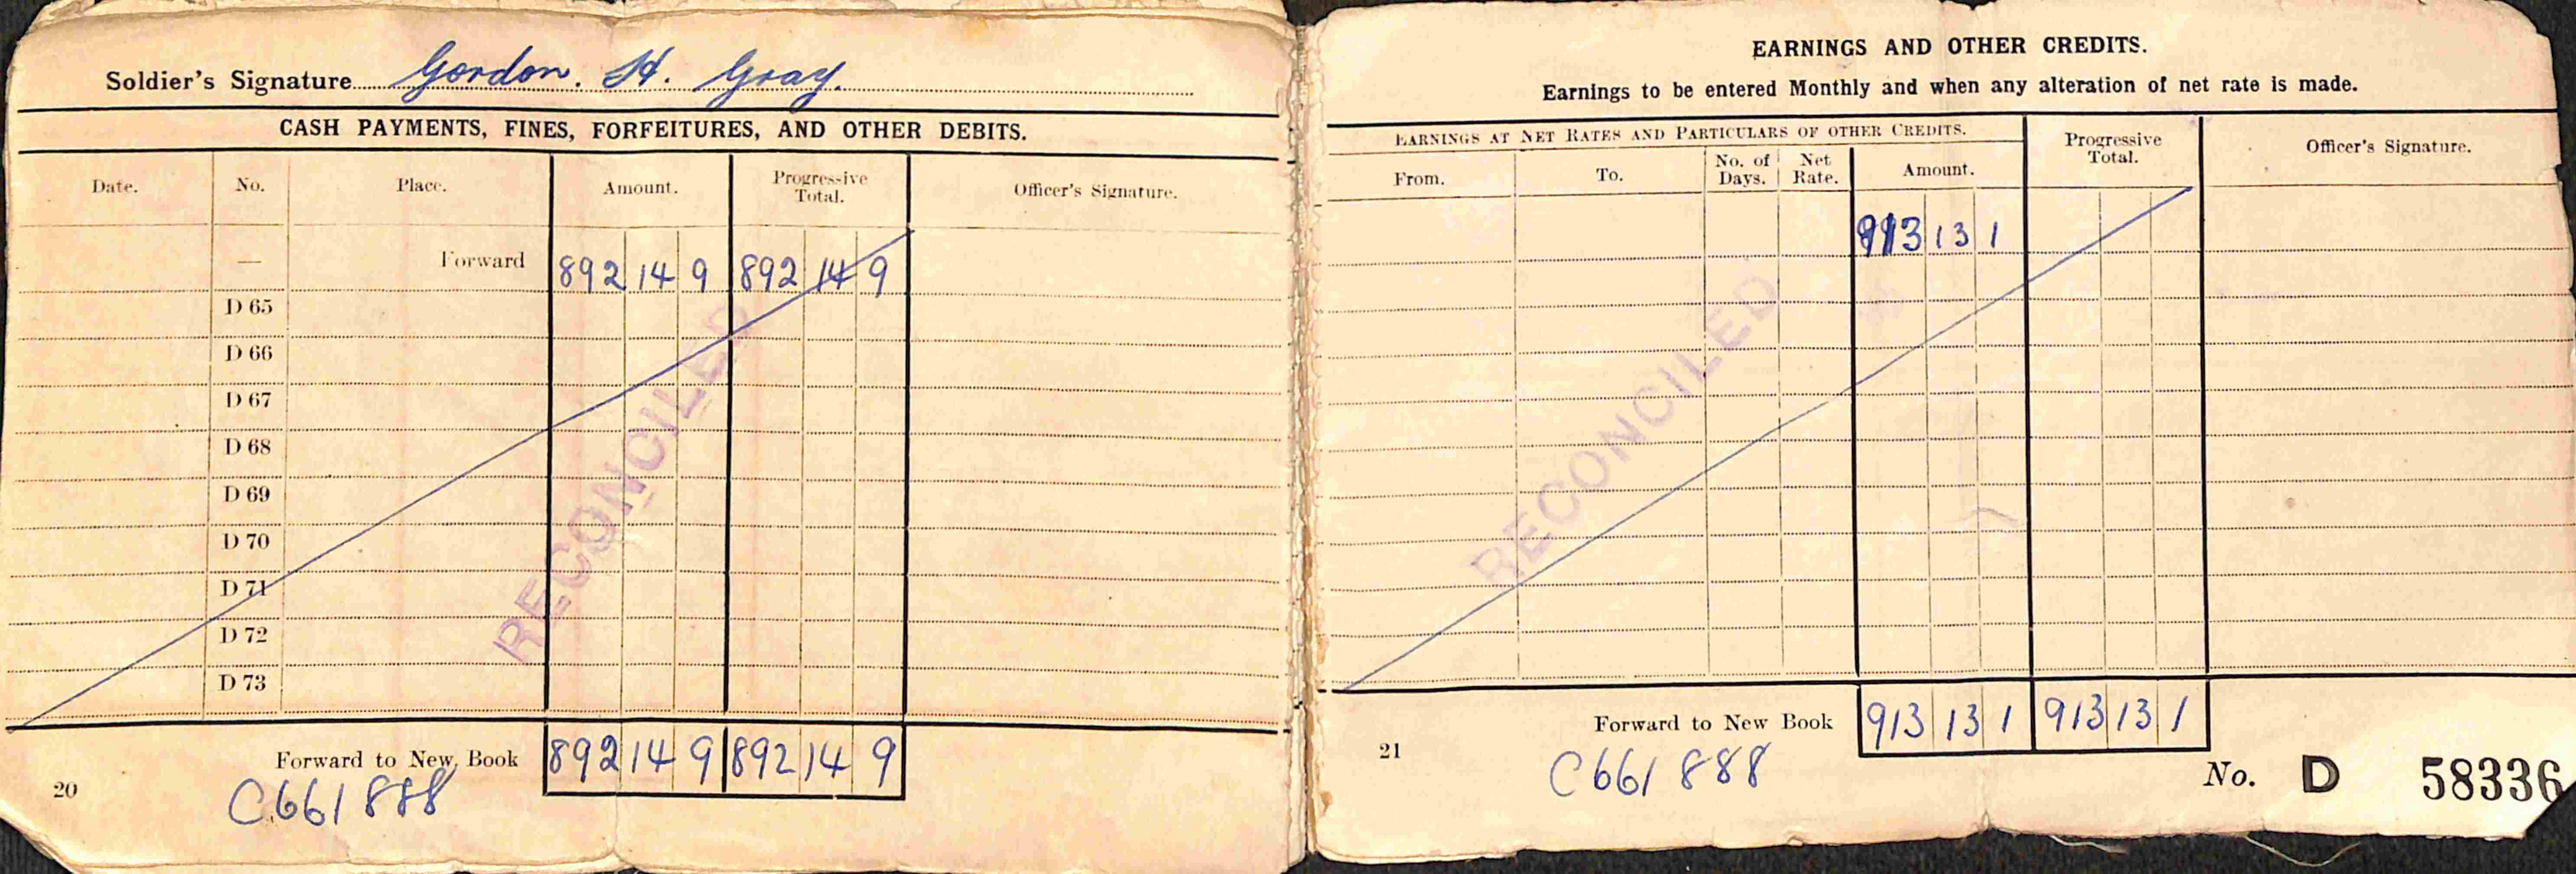 Soldier's Signature Gordon. H. Gray.
CASH PAYMENTS, FINES, FORFEITURES, AND OTHER DEBITS.
Date. No. Place. Amount. Progressive Total. Officer's Signature.
— Forward 892 14 9 892 14 9
D 65
D 66
D 67
D 68
D 69
D 70
D 71
D 72
D 73
RECONCILED
Forward to New Book 892 14 9 892 14 9
20 C661888
EARNINGS AND OTHER CREDITS.
Earnings to be entered Monthly and when any alteration of net rate is made.
EARNINGS AT NET RATES AND PARTICULARS OF OTHER CREDITS. Progressive Total. Officer's Signature.
From. To. No. of Days. Net Rate. Amount.
913 13 1
RECONCILED
Forward to New Book 913 13 1 913 13 1
21 C661888
No. D 58336